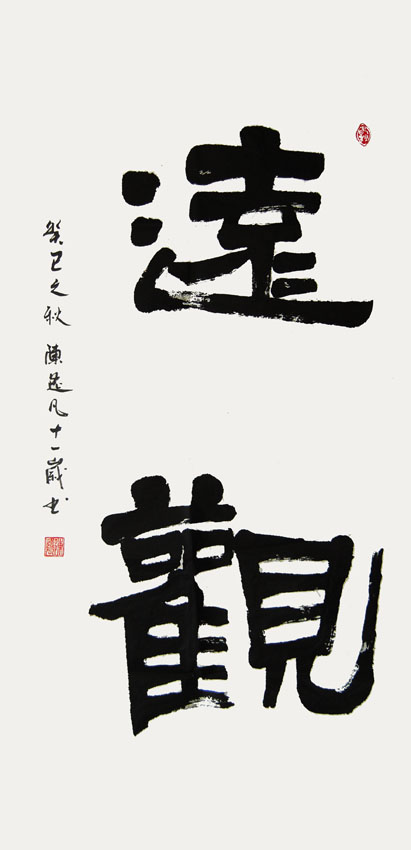 遠觀
癸巳之秋 陳逸凡十一歲書